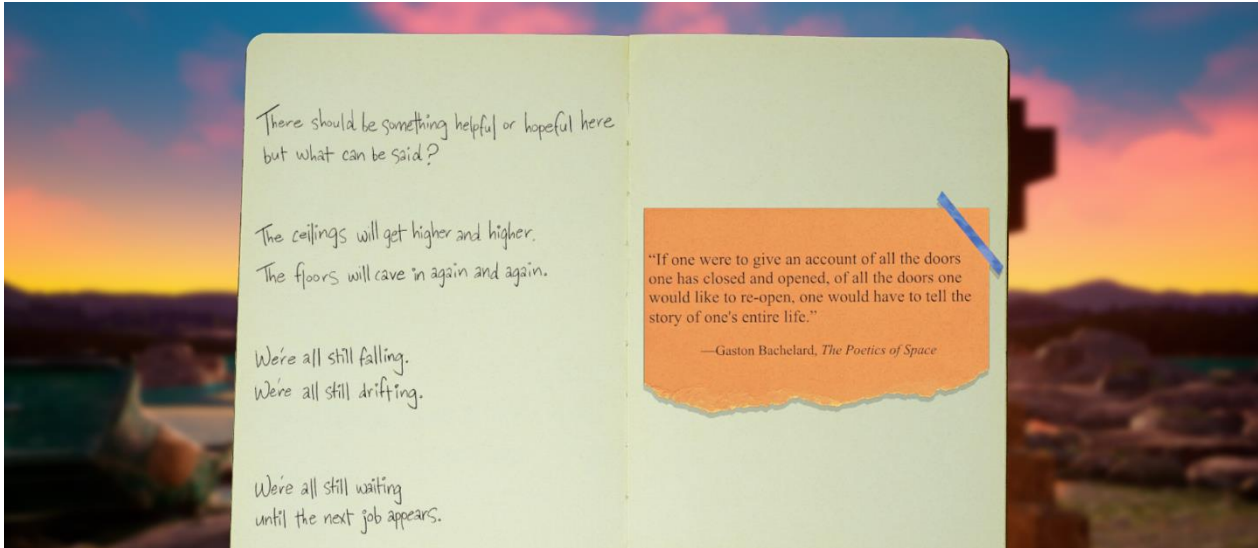 There should be something helpful or hopeful here
but what can be said?
The ceilings will get higher and higher.
The floors will cave in again and again.
We're all still falling.
We're all still drifting.
We're all still waiting
until the next job appears.
“If one were to give an account of all the doors
one has closed and opened, of all the doors one
would like to re-open, one would have to tell the
story of one's entire life.”
—Gaston Bachelard, The Poetics of Space